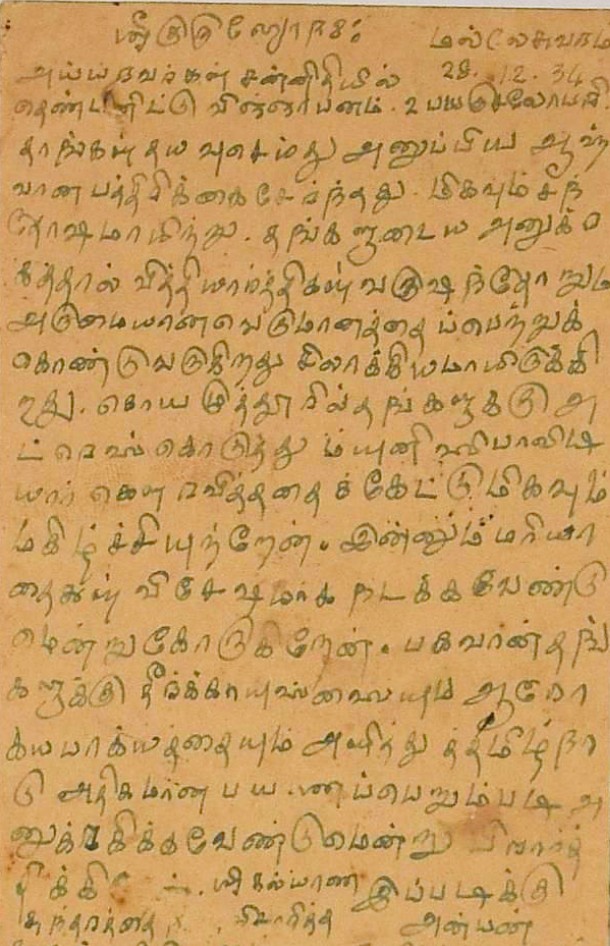 ஸ்ரீகுருப்யோநம: மல்லேசுவரம்
28.12.34
அய்யரவர்கள் சன்னிதியில்
தெண்டனிட்டு விஞ்ஞாபனம். உபயகுசலோபரி
தாங்கள் தயவுசெய்து அனுப்பிய ஆஹ்
வான பத்திரிக்கை சேர்ந்தது. மிகவும் சந்
தோஷமாயிற்று. தங்களுடைய அனுக்ர
கத்தால் வித்தியார்த்திகள் வருஷந்தோறும்
அருமையான வெகுமானத்தைப் பெற்றுக்
கொண்டு வருகிறது சிலாக்கியமாயிருக்கி
றது. கோயமுத்தூரில் தங்களுக்கு அ
ட்ரெஸ் கொடுத்து ம்யுனிஸிபாலிடி
யார் கௌரவித்ததைக் கேட்டு மிகவும்
மகிழ்ச்சியுற்றேன். இன்னும் மரியா
தைகள் விசேஷமாக நடக்கவேண்டு
மென்று கோருகிறேன். பகவான் தங்
களுக்கு தீர்க்காயுஸ்ஸையும் ஆரோ
க்யபாக்யத்தையும் அளித்து தமிழ்நா
டு அதிகமான பயனைப்பெறும்படி அ
னுக்ரகிக்கவேண்டுமென்று பிரார்த்
திக்கி ஸ்ரீ கல்யாண இப்படிக்கு
சுந்தரத்தை விசாரித்த அன்பன்